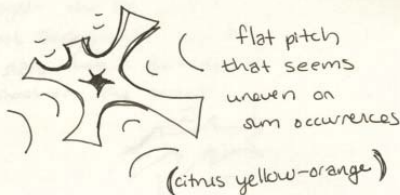 flat pitch
that seems
uneven on
sum occurrences
(citrus yellow-orange)